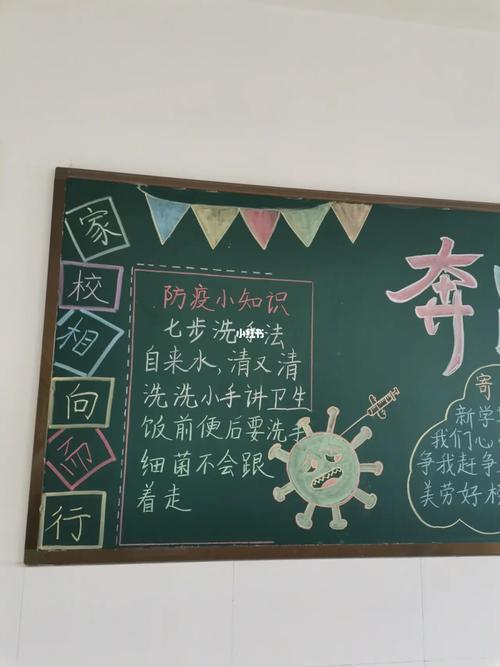 家
校
相
向
而
行
防疫小知识
七步洗手法
自来水,清又清
洗洗小手讲卫生
饭前便后要洗手
细菌不会跟
着走
小红书
奔
寄
新学
我们心
争我赶争
美劳好榜